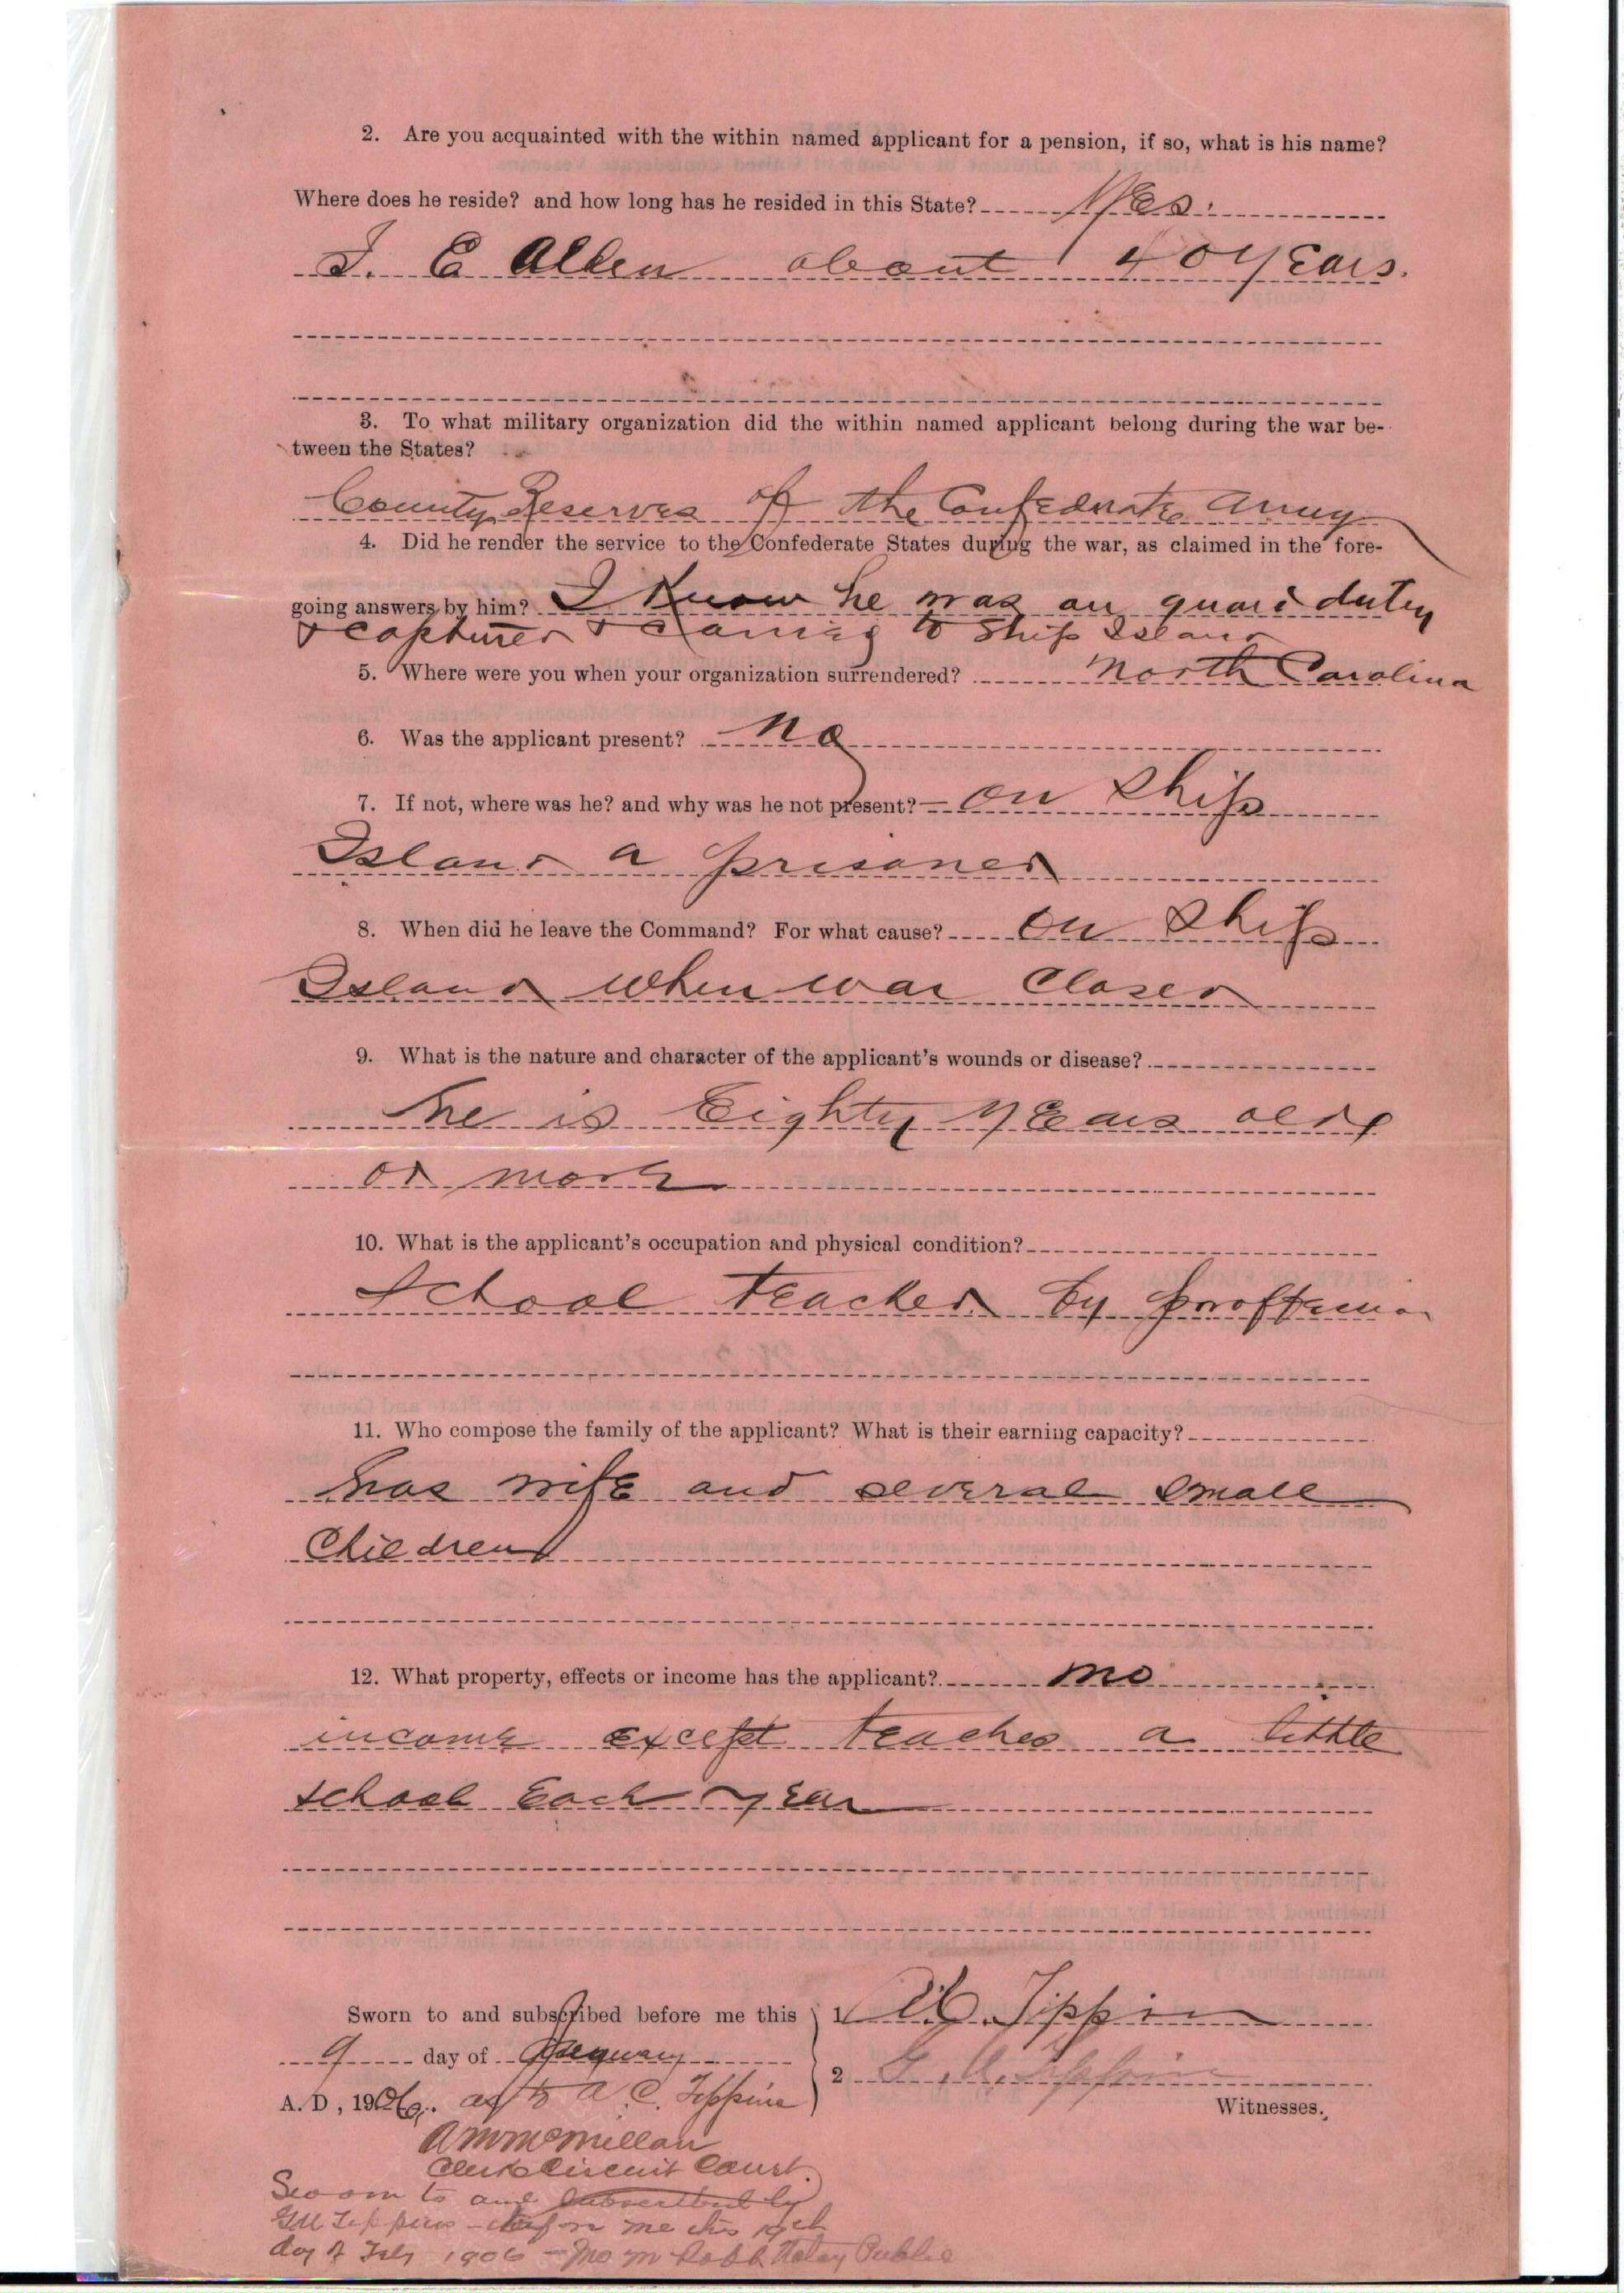 2. Are you acquainted with the within named applicant for a pension, if so, what is his name?
Where does he reside? and how long has he resided in this State? Yes.
J. E Allen about 40 years.
3. To what military organization did the within named applicant belong during the war be-
tween the States?
County Reserves of the Confederate Army
4. Did he render the service to the Confederate States during the war, as claimed in the fore-
going answers by him? I Know he was on guard duty
& captured & carried to Ship Island
5. Where were you when your organization surrendered? North Carolina
6. Was the applicant present? No
7. If not, where was he? and why was he not present? on Ship
Island a prisoner
8. When did he leave the Command? For what cause? on Ship
Island when war closed
9. What is the nature and character of the applicant's wounds or disease?
he is Eighty years old
or more
10. What is the applicant's occupation and physical condition?
School teacher by
11. Who compose the family of the applicant? What is their earning capacity?
has wife and several small
Children
12. What property, effects or income has the applicant? no
income except teaches a little
school Each year
Sworn to and subscribed before me this 1 A.C. Tippin
9 day of
2 G.M. Tippin
A. D, 1906. as to A. C. Tippins
Witnesses.
A M McMillan
Clerk Circuit Court.
Sworn to and subscribed by
GM Tippins before me this
day of Feby 1906 Notary Public